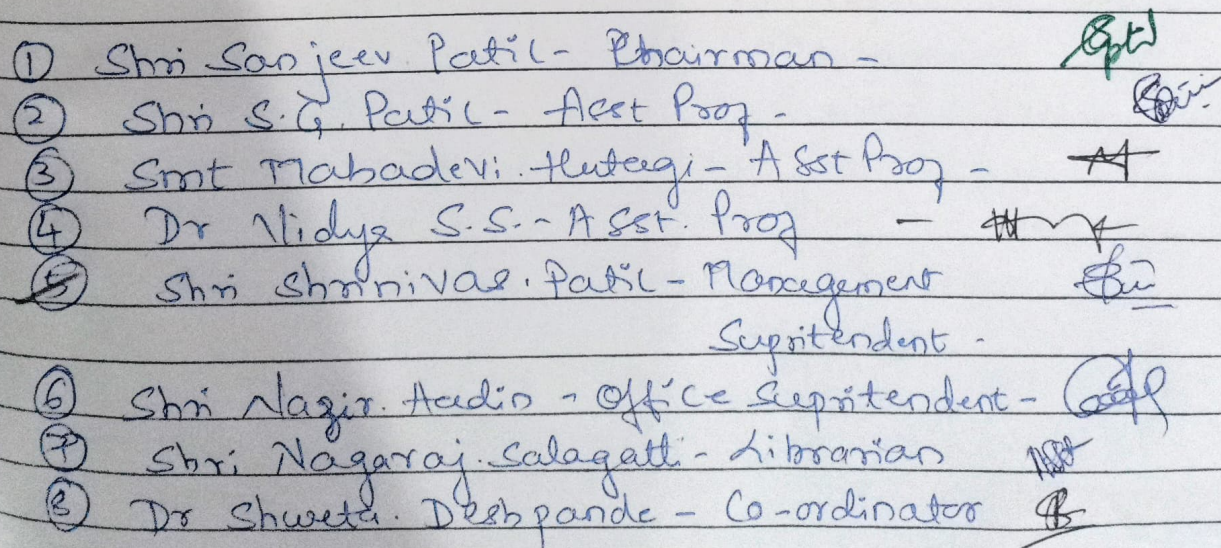 ① Shri Sanjeev Patil - Chairman -
② Shri S.G. Patil - Asst Prof -
③ Smt Mahadevi. Hutagi - Asst Prof -
④ Dr Vidya S.S. - Asst. Prof -
⑤ Shri Shrinivas. Patil - Management
Supritendent -
⑥ Shri Nazir. Aadin - Office Supritendent -
⑦ Shri Nagaraj. Salagatti - Librarian
⑧ Dr Shweta. Deshpande - Co-ordinator